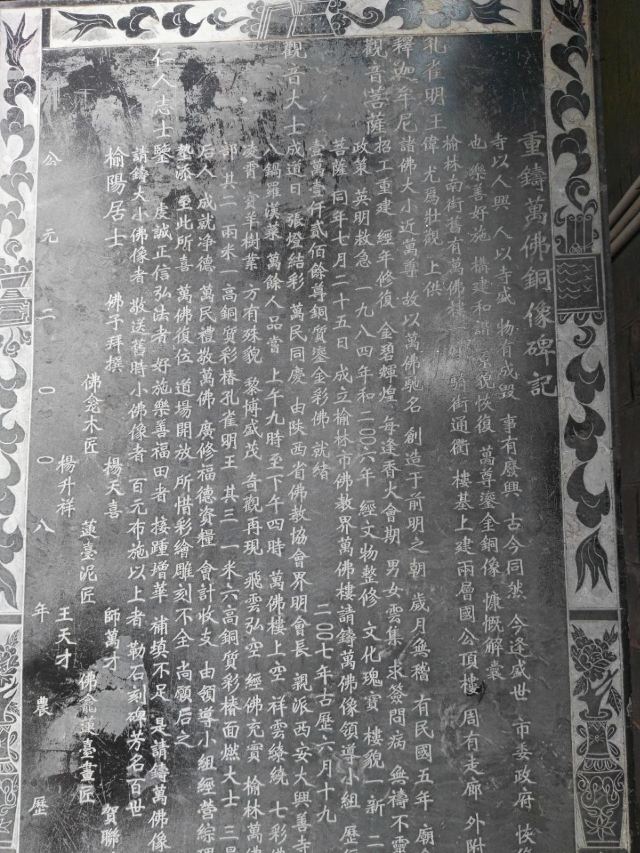 重鑄萬佛銅像碑記
寺以人興 人以寺盛 物有成毀 事有廢興 古今同然 今逢盛世 市委政府 恢
也 樂善好施 構建和諧 原貌恢復 萬尊鎏金銅像 慷慨解囊
榆林南街舊有萬佛樓 騎街通衢 樓基上建兩層國公頂樓 周有走廊 外附
孔雀明王偉 尤爲壯觀 上供
釋迦牟尼諸佛大小近萬尊 故以萬佛馳名 創造于前明之朝 歲月無稽 有民國五年 廟
觀音菩薩招工重建 經年修復 金碧輝煌 每逢香火會期 男女雲集 求簽問病 無禱不靈
政策 英明救急 一九八四年和二〇〇六年 經文物整修 文化瑰寶 樓貌一新 二
菩薩 同年七月二十五日 成立榆林市佛教界萬佛樓請鑄萬佛像領導小組 歷
壹萬壹仟貳佰餘尊銅質鎏金彩佛 就緒 二〇〇七年古歷六月十九
觀音大士成道日 張燈結彩 萬民同慶 由陝西省佛教協會界明會長 親派西安大興善寺
八鍋羅漢菜 萬餘人品嘗 上午九時至下午四時 萬佛樓上空 祥雲繚繞 七彩
凌霄 寶羊樹業 方有殊貌 黎博盛茂 奇觀再現 飛雲弘空 經佛充實 榆林萬佛
部 其二 兩米一高銅質彩樁孔雀明王 其三 一米六高銅質彩樁面燃大士 三
后人 成就净德 萬民禮敬萬佛 廣修福德資糧 會計收支 由領導小組經營綜理
墊添 至此所喜 萬佛復位 道場開放 所惜彩繪雕刻不全 尚願后之
仁人志士鑒 虔誠正信弘法者 好施樂善福田者 接踵增華 補填不足 是請鑄萬佛像
請鑄大小佛像者 敬送舊時小佛像者 百元布施以上者 勒石刻碑 芳名百世
榆陽居士 佛子拜撰
佛龕木匠 楊天喜 楊升祥 蓮臺泥匠 師萬才 王天才 佛龕蓮臺畫匠 賀聯
公元二〇〇八年農歷